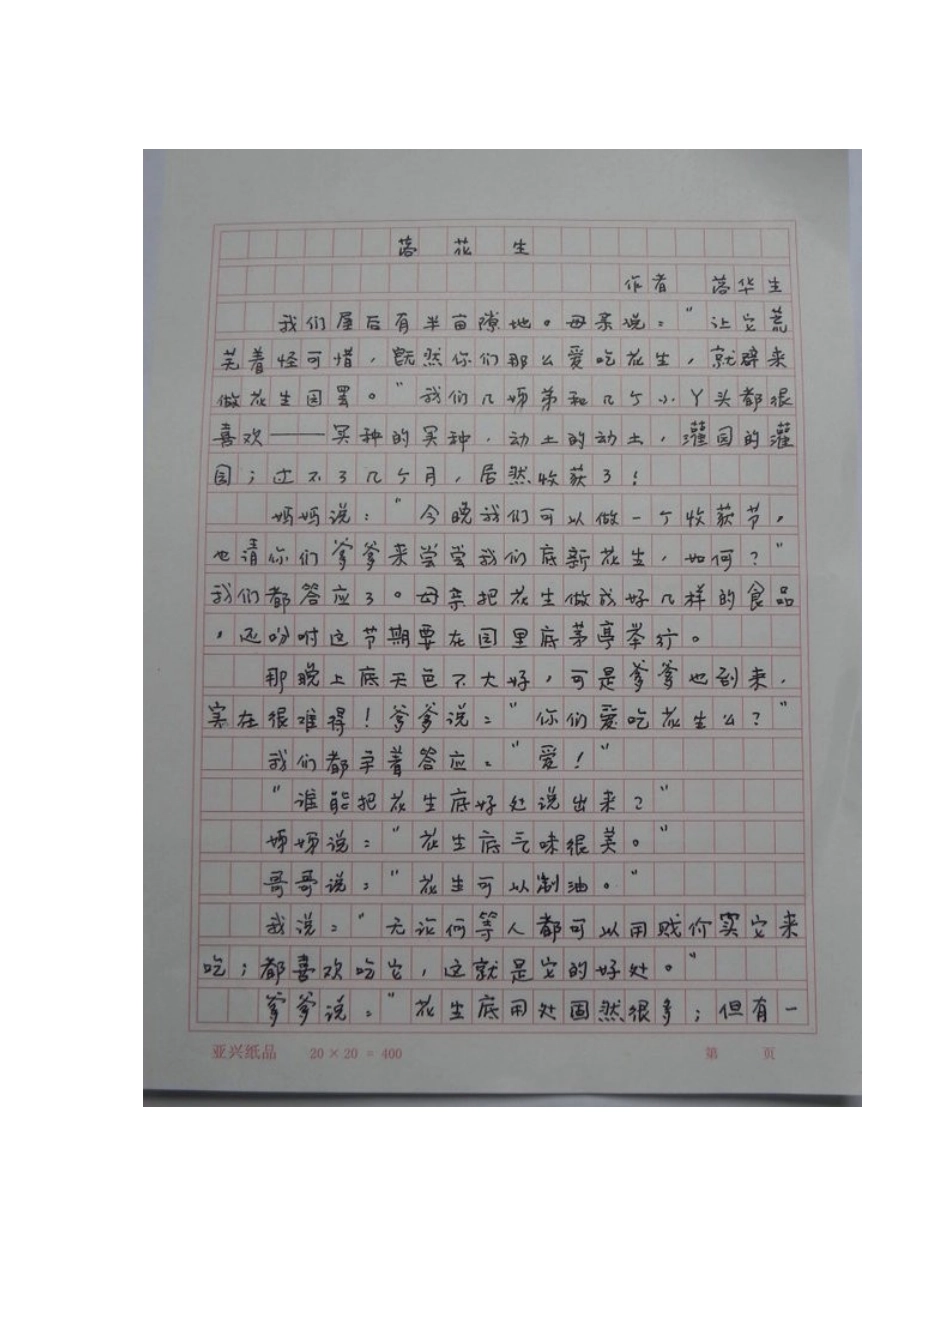 落花生
作者 落华生
我们屋后有半亩隙地。母亲说：“让它荒
芜着怪可惜，既然你们那么爱吃花生，就辟来
做花生园罢。”我们几姊弟和几个小丫头都很
喜欢——买种的买种，动土的动土，灌园的灌
园；过不了几个月，居然收获了！
妈妈说：“今晚我们可以做一个收获节，
也请你们爹爹来尝尝我们底新花生，如何？”
我们都答应了。母亲把花生做成好几样的食品
，还吩咐这节期要在园里底茅亭举行。
那晚上底天色不大好，可是爹爹也到来，
实在很难得！爹爹说：“你们爱吃花生么？”
我们都争着答应：“爱！”
“谁能把花生底好处说出来？”
姊姊说：“花生底气味很美。”
哥哥说：“花生可以制油。”
我说：“无论何等人都可以用贱价买它来
吃；都喜欢吃它，这就是它的好处。”
爹爹说：“花生底用处固然很多；但有一
亚兴纸品 20×20=400 第 页